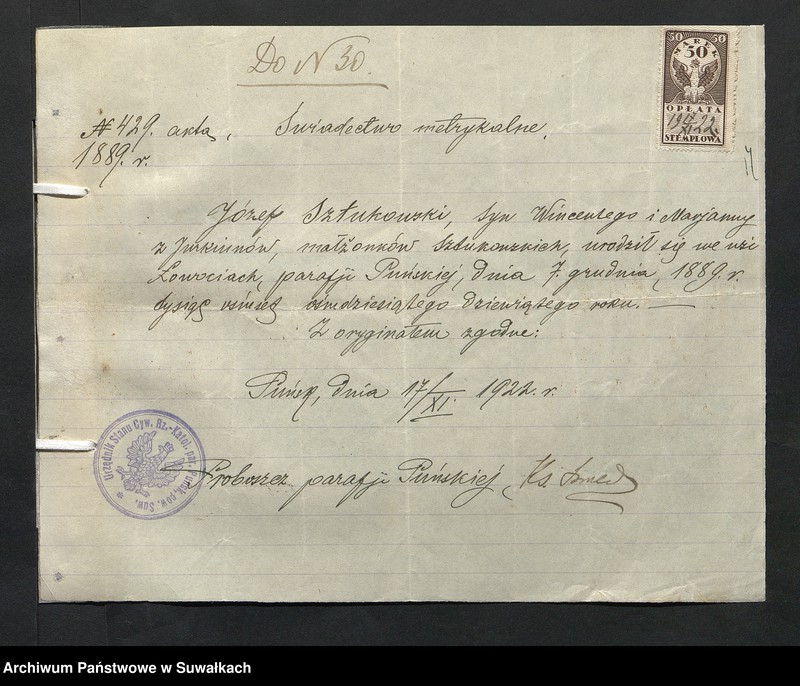 Do N 30.
50 50
MAREK
50
OPŁATA
19 17/XI 22.
STEMPLOWA
N 429. akta, Świadectwo metrykalne.
1889. r.
Józef Sztukowski, syn Wincentego i Marjanny
z Jurkiunów, małżonków Sztukowskich, urodził się we wsi
Łowociach, parafji Puńskiej, dnia 7. grudnia, 1889. r.
tysiąc ośmset ośmdziesiątego dziewiątego roku. —
Z oryginałem zgodne:
Puńsk, dnia 17/XI. 1922. r.
Urzędnik Stanu Cyw. Rz.-Katol. par. Puńsk, pow. Suw.
Proboszcz parafji Puńskiej, Ks.
Archiwum Państwowe w Suwałkach